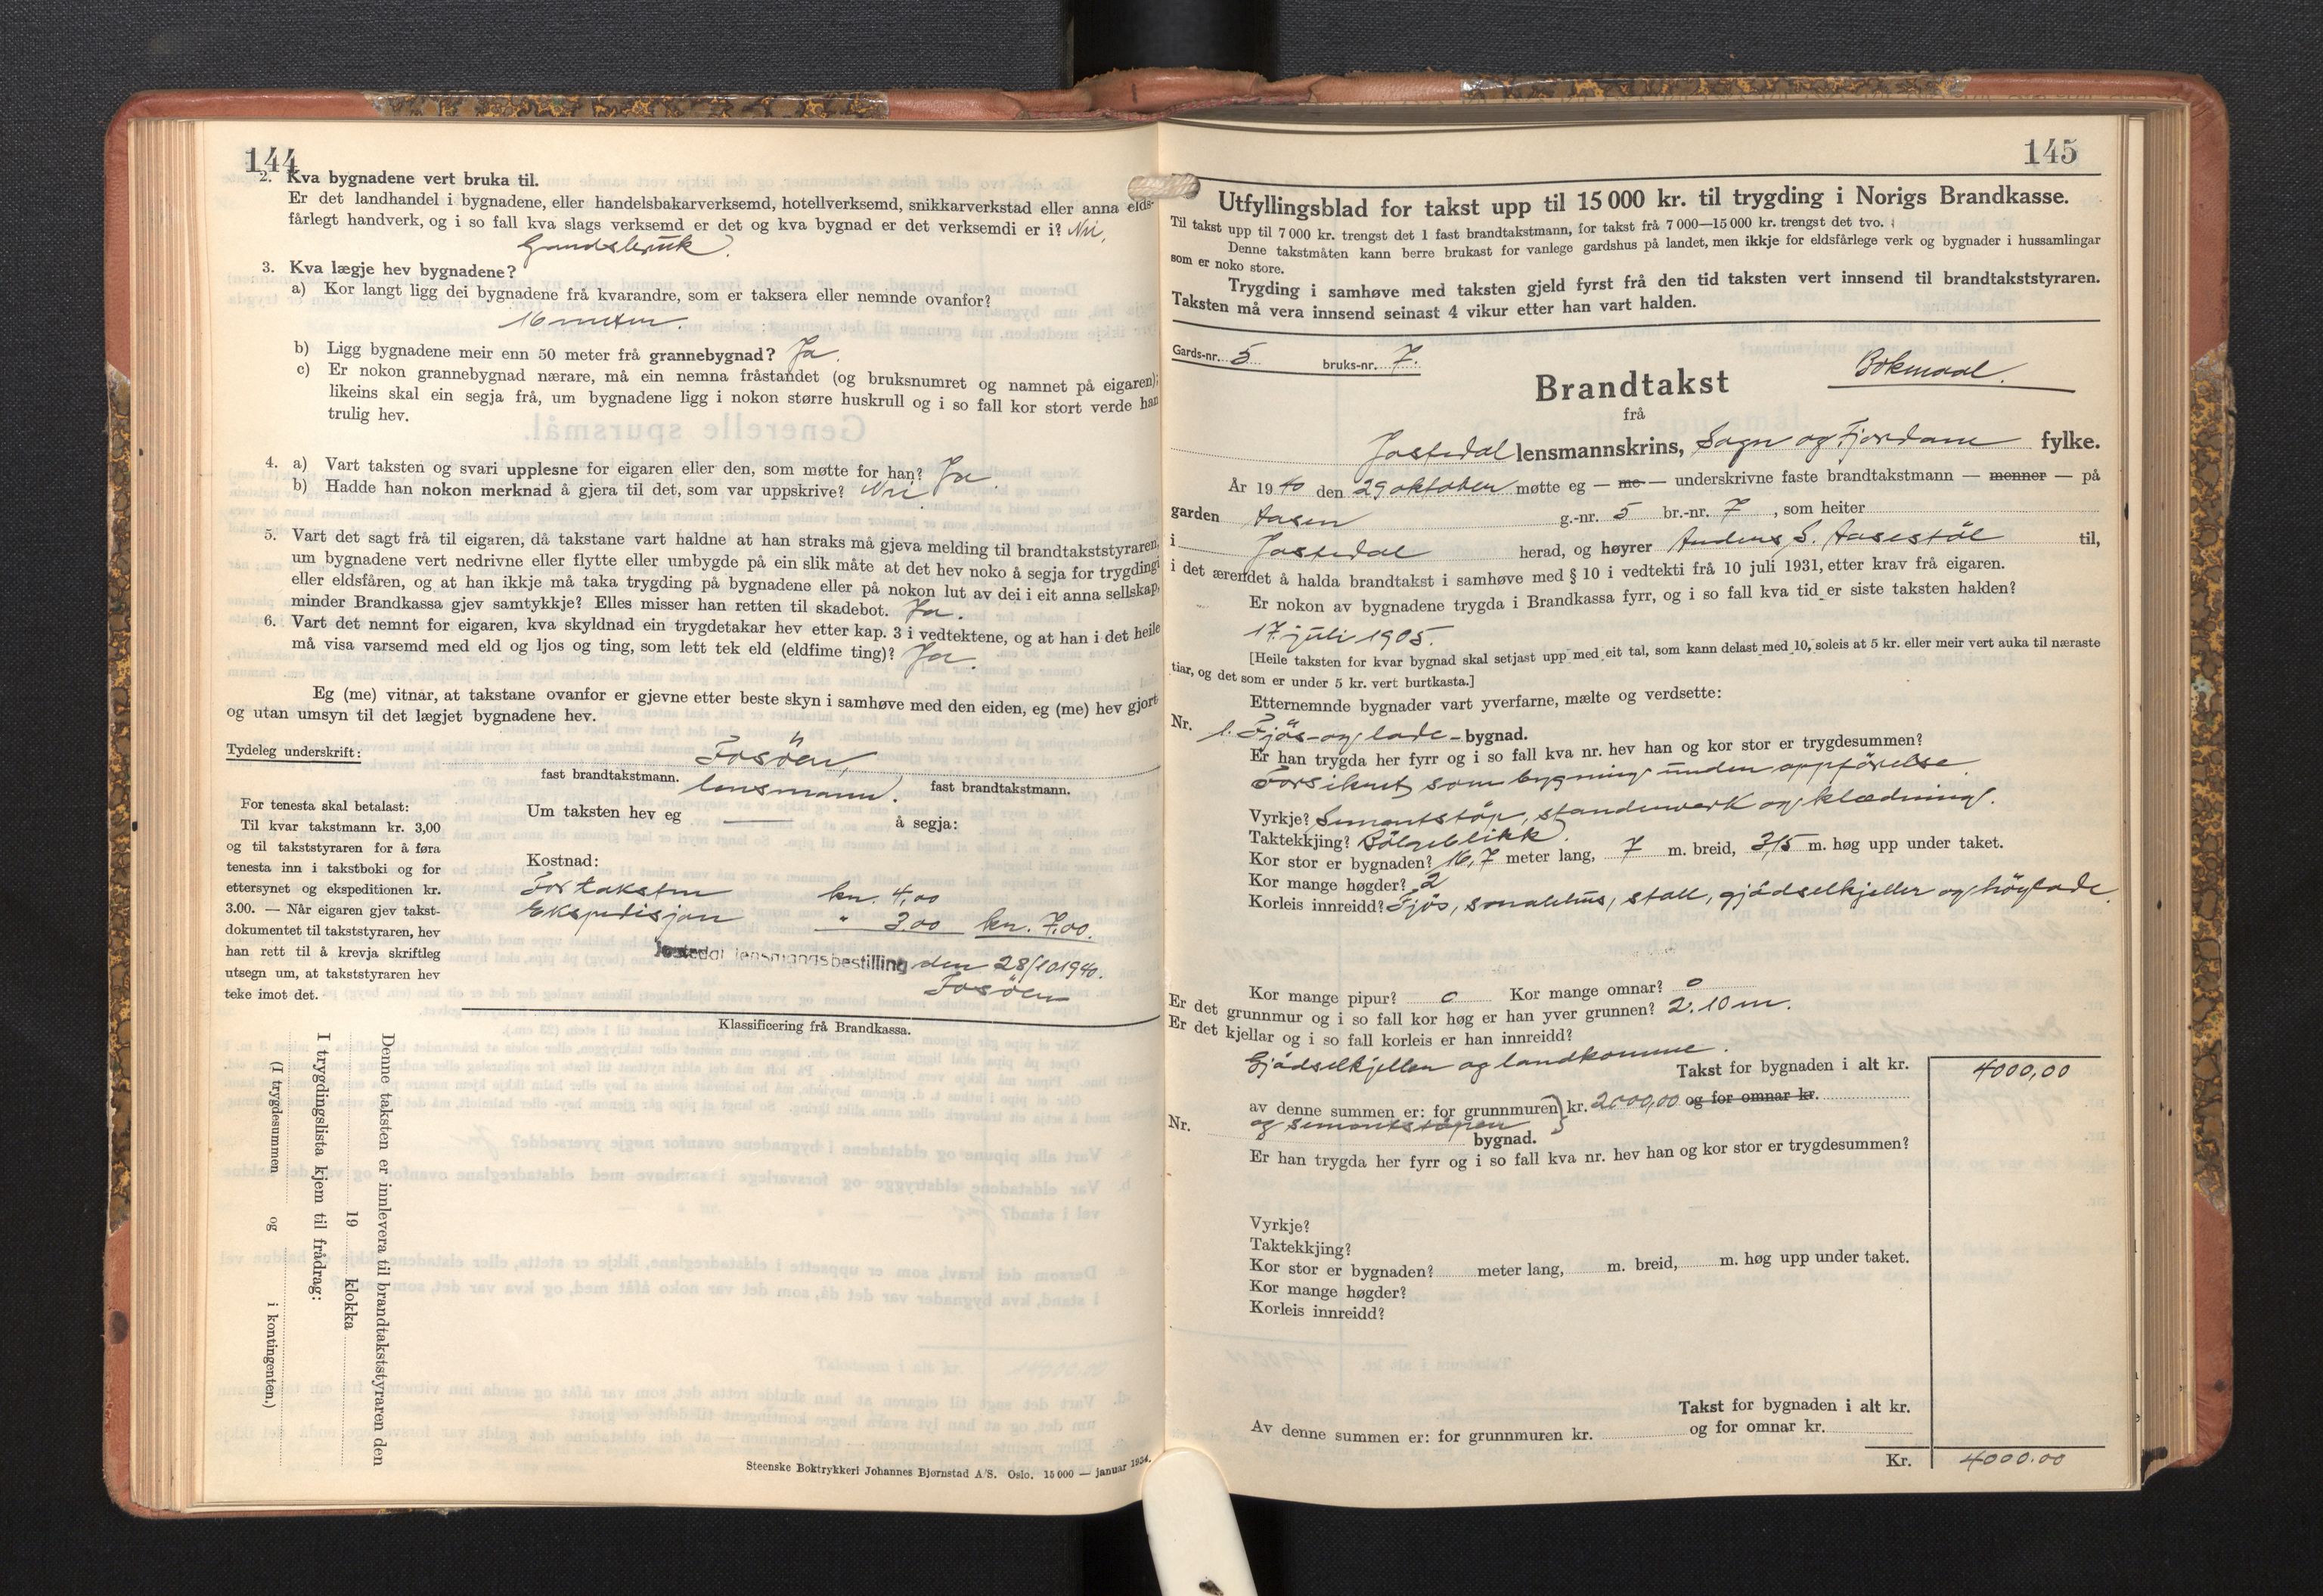 144
2. Kva bygnadene vert bruka til.
Er det landhandel i bygnadene, eller handelsbakarverksemd, hotellverksemd, snikkarverkstad eller anna elds-
fårlegt handverk, og i so fall kva slags verksemd er det og kva bygnad er det verksemdi er i? Nei,
Gaardsbruk.
3. Kva lægje hev bygnadene?
a) Kor langt ligg dei bygnadene frå kvarandre, som er taksera eller nemnde ovanfor?
16 meter.
b) Ligg bygnadene meir enn 50 meter frå grannebygnad? Ja.
c) Er nokon grannebygnad nærare, må ein nemna fråstandet (og bruksnumret og namnet på eigaren);
likeins skal ein segja frå, um bygnadene ligg i nokon større huskrull og i so fall kor stort verde han
trulig hev.
4. a) Vart taksten og svari upplesne for eigaren eller den, som møtte for han? Ja.
b) Hadde han nokon merknad å gjera til det, som var uppskrive? Nei.
5. Vart det sagt frå til eigaren, då takstane vart haldne at han straks må gjeva melding til brandtakststyraren,
um bygnadene vert nedrivne eller flytte eller umbygde på ein slik måte at det hev noko å segja for trygdingi
eller eldsfåren, og at han ikkje må taka trygding på bygnadene eller på nokon lut av dei i eit anna sellskap,
minder Brandkassa gjev samtykkje? Elles misser han retten til skadebot. Ja.
6. Vart det nemnt for eigaren, kva skyldnad ein trygdetakar hev etter kap. 3 i vedtektene, og at han i det heile
må visa varsemd med eld og ljos og ting, som lett tek eld (eldfime ting)? Ja.
Eg (me) vitnar, at takstane ovanfor er gjevne etter beste skyn i samhøve med den eiden, eg (me) hev gjort
og utan umsyn til det lægjet bygnadene hev.
Tydeleg underskrift: Fosöen,
fast brandtakstmann. lensmann. fast brandtakstmann.
Um taksten hev eg — å segja:
For tenesta skal betalast:
Til kvar takstmann kr. 3,00
og til takststyraren for å føra
tenesta inn i takstboki og for
ettersynet og ekspeditionen kr.
3.00. — Når eigaren gjev takst-
dokumentet til takststyraren, hev
han rett til å krevja skriftleg
utsegn um, at takststyraren hev
teke imot det.
Kostnad:
For taksten kr. 4,00
Ekspedisjon " 3.00 kr. 7.00.
Jostedal lensmannsbestilling den 28/10 1940.
Fosöen
Klassificering frå Brandkassa.
Denne taksten er innlevera til brandtakststyraren den
19 klokka
I trygdingslista kjem til frådrag:
(I trygdesummen og i kontingenten.)
Steenske Boktrykkeri Johannes Bjørnstad A/S. Oslo. 15 000 — januar 1934.
145
Utfyllingsblad for takst upp til 15 000 kr. til trygding i Norigs Brandkasse.
Til takst upp til 7 000 kr. trengst det 1 fast brandtakstmann, for takst frå 7 000—15 000 kr. trengst det tvo.
Denne takstmåten kann berre brukast for vanlege gardshus på landet, men ikkje for eldsfårlege verk og bygnader i hussamlingar
som er noko store.
Trygding i samhøve med taksten gjeld fyrst frå den tid taksten vert innsend til brandtakststyraren.
Taksten må vera innsend seinast 4 vikur etter han vart halden.
Gards-nr. 5 bruks-nr. 7.
Bokmaal.
Brandtakst
frå
Jostedal lensmannskrins, Sogn og Fjordane fylke.
År 1940 den 29 oktober møtte eg — me — underskrivne faste brandtakstmann — menner — på
garden Aasen g.-nr. 5 br.-nr. 7, som heiter
i Jostedal herad, og høyrer Anders S. Aasestöl til,
i det ærendet å halda brandtakst i samhøve med § 10 i vedtekti frå 10 juli 1931, etter krav frå eigaren.
Er nokon av bygnadene trygda i Brandkassa fyrr, og i so fall kva tid er siste taksten halden?
17. juli 1905.
[Heile taksten for kvar bygnad skal setjast upp med eit tal, som kann delast med 10, soleis at 5 kr. eller meir vert auka til næraste
tiar, og det som er under 5 kr. vert burtkasta.]
Etternemnde bygnader vart yverfarne, mælte og verdsette:
Nr. 1. Fjös- og lade- bygnad.
Er han trygda her fyrr og i so fall kva nr. hev han og kor stor er trygdesummen?
Forsikret som bygning under oppförelse.
Vyrkje? Sementstöp, standerverk og klædning.
Taktekkjing? Bölgeblikk.
Kor stor er bygnaden? 16,7 meter lang, 7 m. breid, 3,5 m. høg upp under taket.
Kor mange høgder? 2
Korleis innreidd? Fjös, smalehus, stall, gjödselkjeller og höylade.
Kor mange pipur? 0 Kor mange omnar? 0
Er det grunnmur og i so fall kor høg er han yver grunnen? 2.10 m.
Er det kjellar og i so fall korleis er han innreidd?
Gjödselkjeller og landkomme.
Takst for bygnaden i alt kr. 4000,00
av denne summen er: for grunnmuren} kr. 2000,00 og for omnar kr.
og sementstöpen
Nr. bygnad.
Er han trygda her fyrr og i so fall kva nr. hev han og kor stor er trygdesummen?
Vyrkje?
Taktekkjing?
Kor stor er bygnaden? meter lang, m. breid, m. høg upp under taket.
Kor mange høgder?
Korleis innreidd?
Takst for bygnaden i alt kr.
Av denne summen er: for grunnmuren kr. og for omnar kr.
Kr. 4000.00